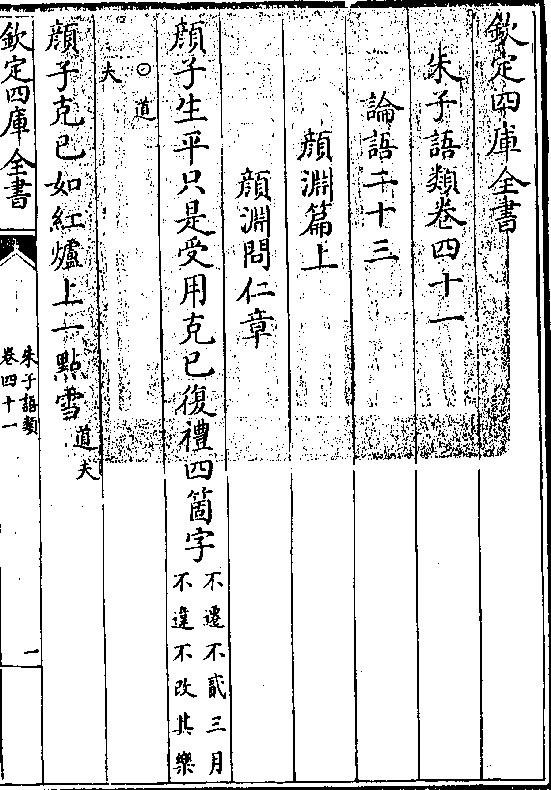 欽定四庫全書
朱子語類卷四十一
論語二十三
顔淵篇上
顔淵問仁章
顔子生平只是受用克已復禮四箇字不遷不貳三月
不違不改其樂
○道
夫
顔子克已如紅爐上一點雪道
夫
欽定四庫全書
朱子語類
卷四十一
一